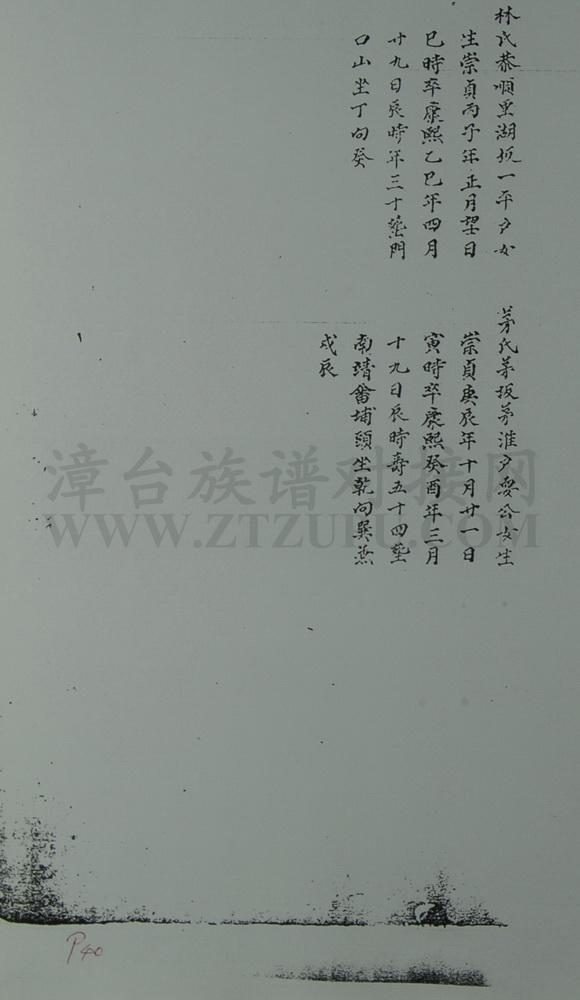 林氏恭順里湖坂一平戶女
生崇貞丙子年正月望日
巳時卒康熙乙巳年四月
廿九日辰時年三十塟門
口山坐丁向癸
茅氏茅坂茅淮戶愛公女生
崇貞庚辰年十月廿一日
寅時卒康熙癸酉年三月
十九日辰時壽五十四塟
南靖畬埔頭坐乾向巽兼
戌辰
漳台族谱对接网
WWW.ZTZUPU.COM
P40